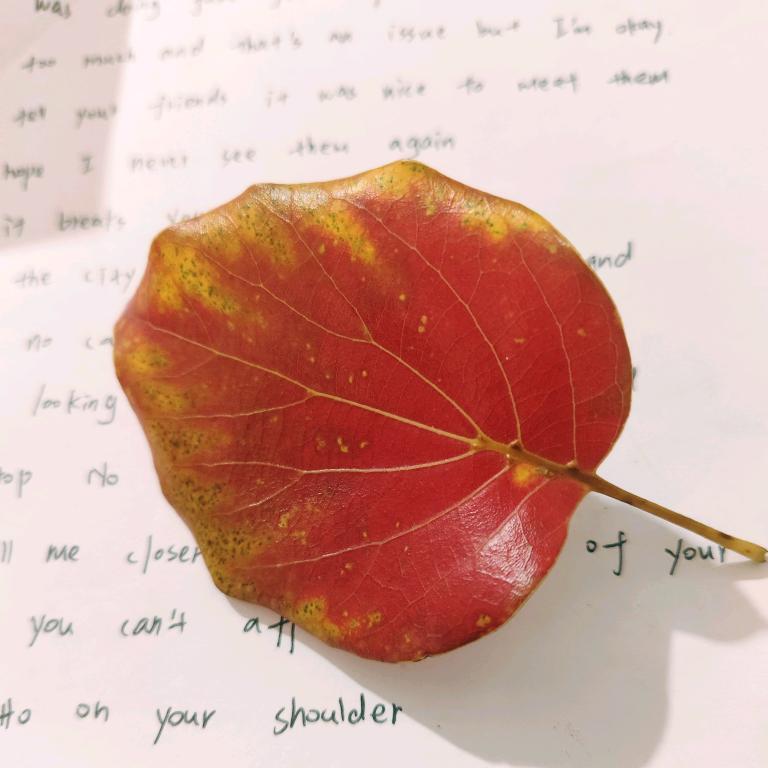 was doing
too much and that's an issue but I'm okay
tell your friends it was nice to meet them
hope I never see them again
it breaks
the city and
no ca
looking
top No
ll me closer of your
you can't aff
tto on your shoulder